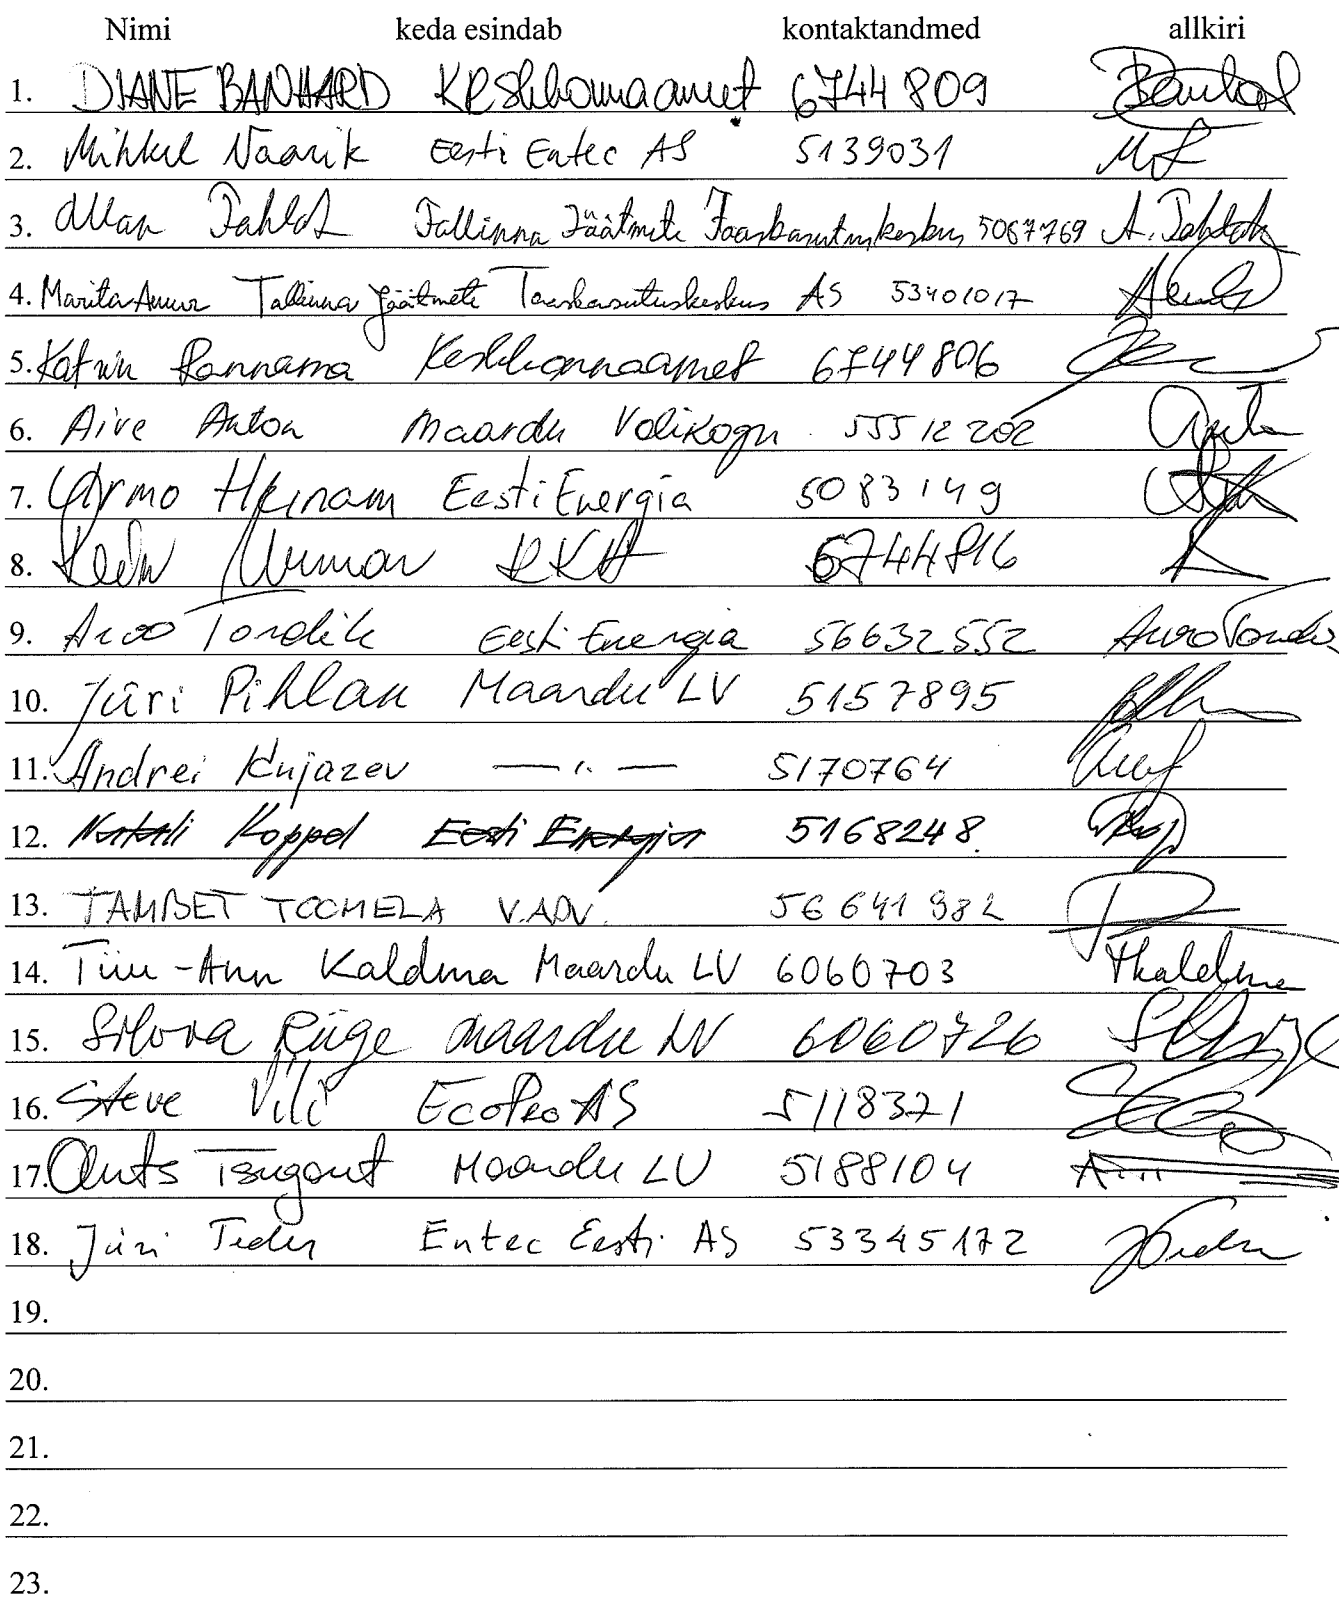 Nimi keda esindab kontaktandmed allkiri
1. DIANE BANHARD Keskkonnaamet 6744809
2. Mihkel Vaarik Eesti Entec AS 5139031
3. Allan Tallinna Jäätmete Taaskasutuskeskus 5067769
4. Marita Tallinna Jäätmete Taaskasutuskeskus AS 53401017
5. Katrin Rannama Keskkonnaamet 6744806
6. Aive Anton Maardu Volikogu 55512202
7. Urmo Heinam Eesti Energia 5083149
8. KKA 6744816
9. Arvo Tordik Eesti Energia 56632552
10. Jüri Pihlau Maardu LV 5157895
11. Andrei Knjazev —"— 5170764
12. Natali Koppel Eesti Energia 5168248
13. TAMBET TOOMELA V.ADV. 56641982
14. Tiiu-Ann Kaldma Maardu LV 6060703
15. Silova Rüge Maardu LV 6060726
16. Steve Vili EcoPro AS 5118321
17. Ants Tsugart Maardu LV 5188104
18. Jüri Teder Entec Eesti AS 53345172
19.
20.
21.
22.
23.